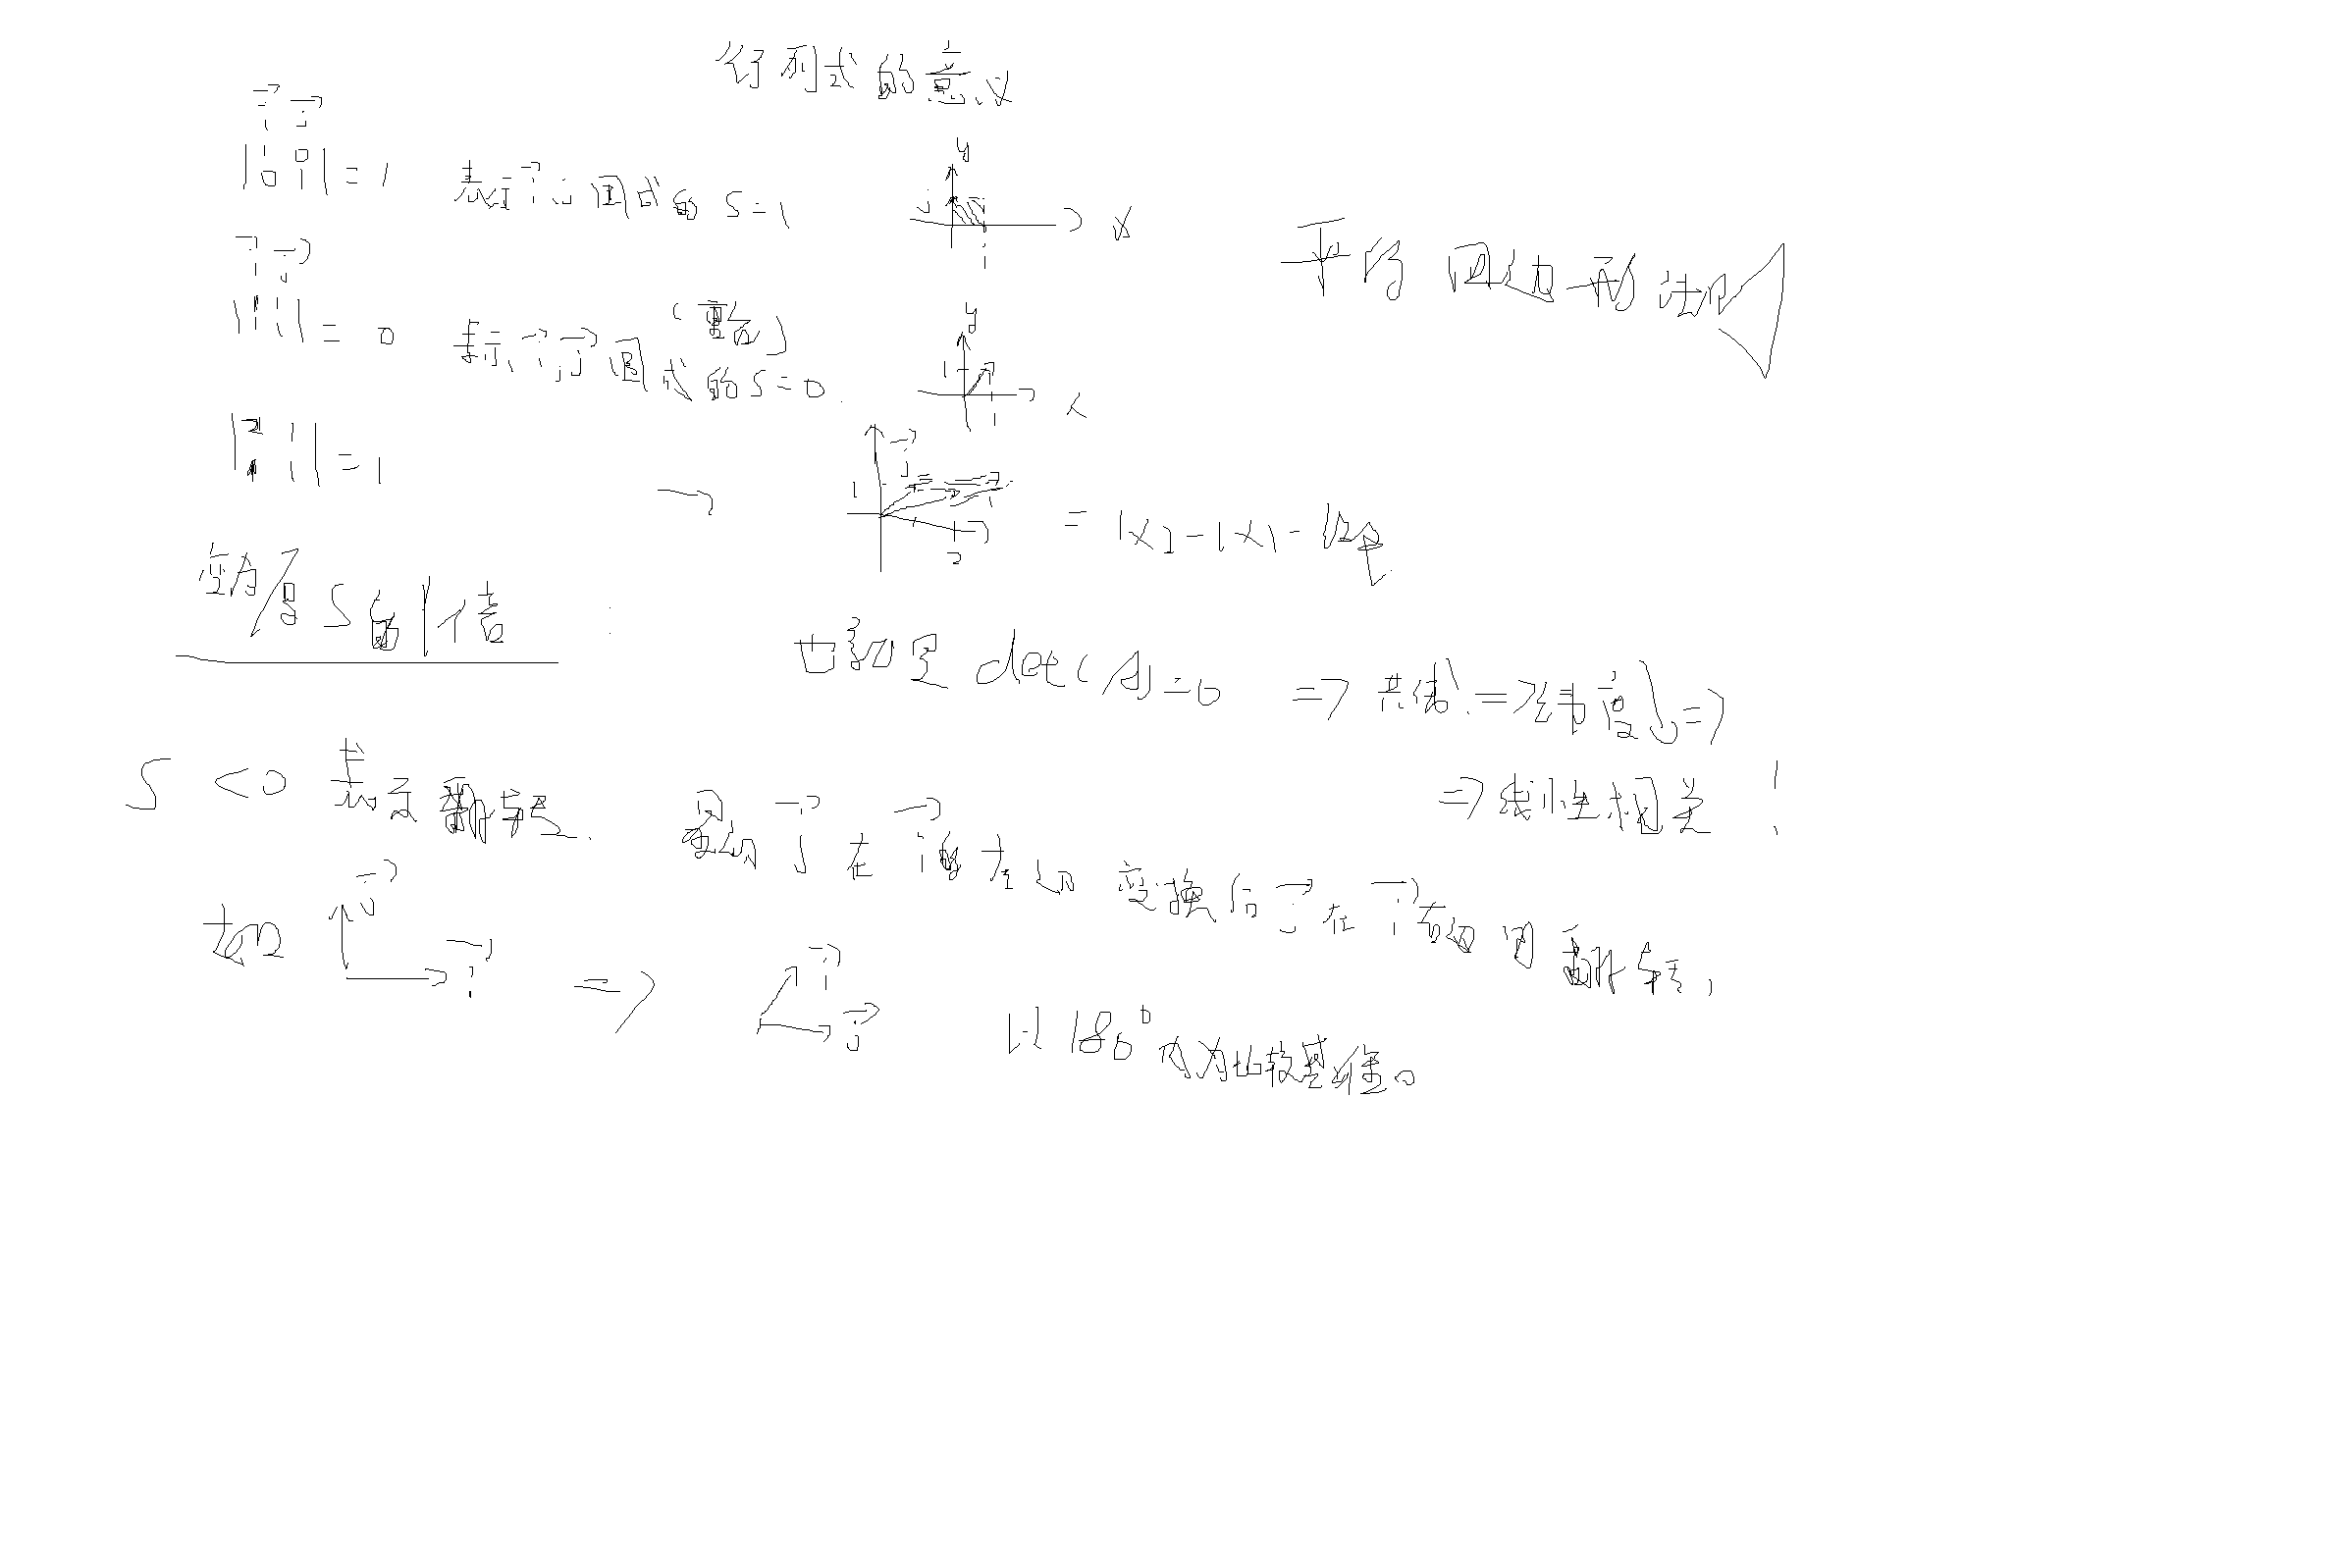 行列式的意义
i j
|1 0
0 1| = 1 表示 i j 围成的 S=1
y
j
i
x
平行四边形法则
i j
|1 1
1 1| = 0 表示 i, j 围成的 S=0
(重合)
y
1
1
x
|2 1
1 1| = 1
→
j
i
1
1
2
= 1x2-1x1-
变为原S的1倍
也就是 det(A)=0 => 共线 =>
=> 线性相关!
S <0 表示翻转. j 在 i 的左切 变换后 j 在 i 右 翻转,
如
j
i
=>
i
j
以 180° 内为比较基准。